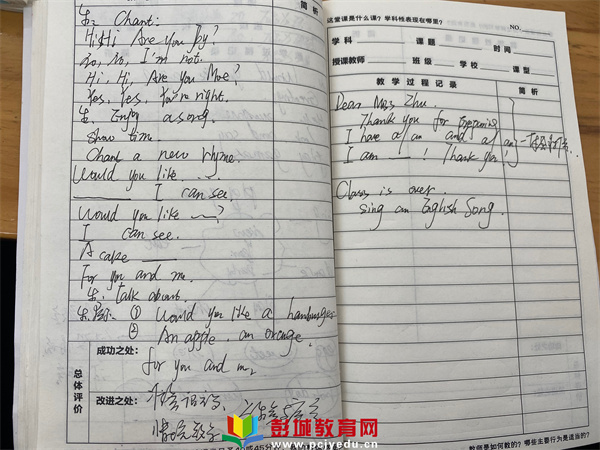 简析
生: Chant:
Hi, Hi Are you Joy?
No, No, I'm not.
Hi, Hi, Are you Moe?
Yes, Yes, You're right.
生: Enjoy a song.
Show time
Chant a new rhyme.
Would you like
I can see.
Would you like ?
I can see.
A cake
For you and me.
生: talk about.
① Would you like a hamburger
② An apple. an orange.
总体评价
成功之处:
for you and me
改进之处:
这堂课是什么课?学科性表现在哪里?
NO.
学科 课题 时间
授课教师 班级 学校 课型
教学过程记录
简析
Dear Miss Zhu.
Thank you for
I have a/an and a/an
I am ! Thank you!
Class is over.
sing an English Song.
彭城教育网
www.pcjyedu.cn
教师是如何教的?哪些主要行为是适当的?